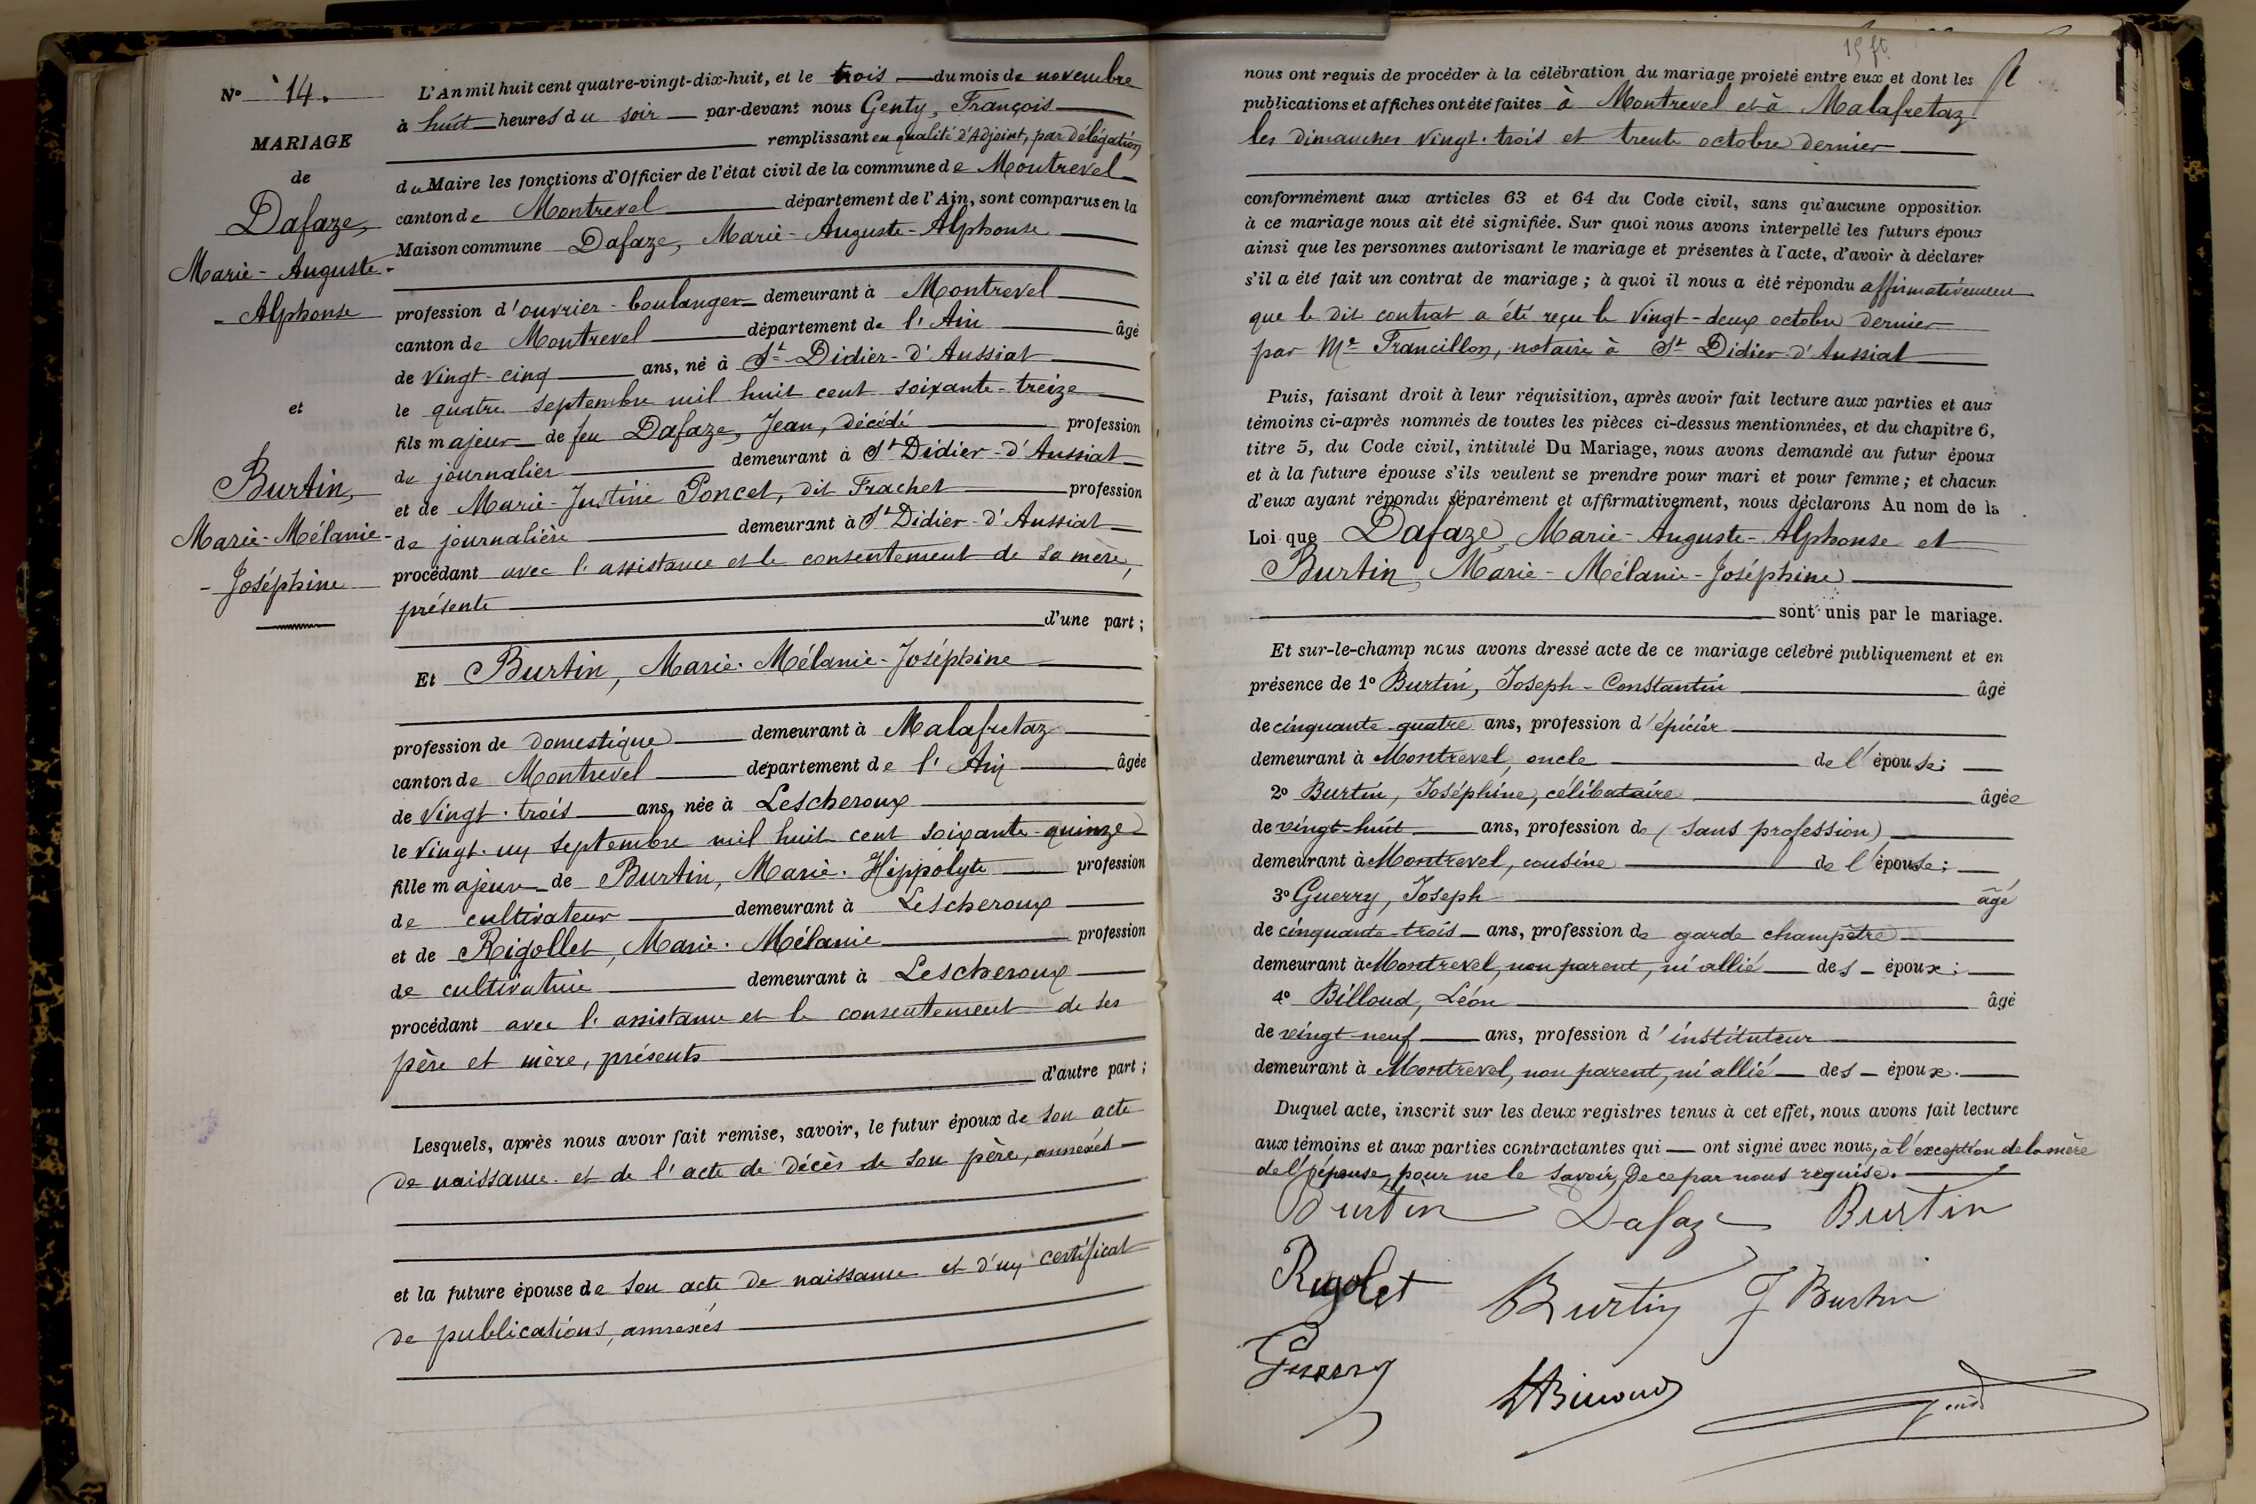 N° 14.
MARIAGE
de
Dafaze,
Marie-Auguste-
-Alphonse
et
Burtin,
Marie-Mélanie-
-Joséphine
L'An mil huit cent quatre-vingt-dix-huit, et le trois du mois de novembre
à huit heures du soir par-devant nous Genty, François
remplissant en qualité d'Adjoint, par délégation
du Maire les fonctions d'Officier de l'état civil de la commune de Montrevel
canton de Montrevel département de l'Ain, sont comparus en la
Maison commune Dafaze, Marie-Auguste-Alphonse
profession d'ouvrier-boulanger demeurant à Montrevel
canton de Montrevel département de l'Ain âgé
de vingt-cinq ans, né à St-Didier-d'Aussiat
le quatre septembre mil huit cent soixante-treize
fils majeur de feu Dafaze, Jean, décédé profession
de journalier demeurant à St Didier-d'Aussiat
et de Marie-Justine Poncet, dit Frachet profession
de journalière demeurant à St Didier-d'Aussiat
procédant avec l'assistance et le consentement de sa mère,
présente
d'une part ;
Et Burtin, Marie-Mélanie-Joséphine
profession de domestique demeurant à Malafretaz
canton de Montrevel département de l'Ain âgée
de vingt-trois ans, née à Lescheroux
le vingt-un septembre mil huit cent soixante-quinze
fille majeure de Burtin, Marie-Hippolyte profession
de cultivateur demeurant à Lescheroux
et de Rigollet, Marie-Mélanie profession
de cultivatrice demeurant à Lescheroux
procédant avec l'assistance et le consentement de ses
père et mère, présents
d'autre part ;
Lesquels, après nous avoir fait remise, savoir, le futur époux de son acte
de naissance et de l'acte de décès de son père, annexés
et la future épouse de son acte de naissance et d'un certificat
de publications, annexés
15 ft
nous ont requis de procéder à la célébration du mariage projeté entre eux et dont les
publications et affiches ont été faites à Montrevel et à Malafretaz
les dimanches vingt-trois et trente octobre dernier
conformément aux articles 63 et 64 du Code civil, sans qu'aucune opposition
à ce mariage nous ait été signifiée. Sur quoi nous avons interpellé les futurs époux
ainsi que les personnes autorisant le mariage et présentes à l'acte, d'avoir à déclarer
s'il a été fait un contrat de mariage ; à quoi il nous a été répondu affirmativement
que le dit contrat a été reçu le vingt-deux octobre dernier
par Me Francillon, notaire à St Didier-d'Aussiat
Puis, faisant droit à leur réquisition, après avoir fait lecture aux parties et aux
témoins ci-après nommés de toutes les pièces ci-dessus mentionnées, et du chapitre 6,
titre 5, du Code civil, intitulé Du Mariage, nous avons demandé au futur époux
et à la future épouse s'ils veulent se prendre pour mari et pour femme ; et chacun
d'eux ayant répondu séparément et affirmativement, nous déclarons Au nom de la
Loi que Dafaze, Marie-Auguste-Alphonse et
Burtin, Marie-Mélanie-Joséphine
sont unis par le mariage.
Et sur-le-champ nous avons dressé acte de ce mariage célébré publiquement et en
présence de 1° Burtin, Joseph-Constantin âgé
de cinquante-quatre ans, profession d'épicier
demeurant à Montrevel, oncle de l'épouse ;
2° Burtin, Joséphine, célibataire âgée
de vingt-huit ans, profession de (sans profession)
demeurant à Montrevel, cousine de l'épouse ;
3° Guerry, Joseph âgé
de cinquante-trois ans, profession de garde champêtre
demeurant à Montrevel, non parent, ni allié des époux ;
4° Billoud, Léon âgé
de vingt-neuf ans, profession d'instituteur
demeurant à Montrevel, non parent, ni allié des époux.
Duquel acte, inscrit sur les deux registres tenus à cet effet, nous avons fait lecture
aux témoins et aux parties contractantes qui ont signé avec nous, à l'exception de la mère
de l'épouse, pour ne le savoir, de ce par nous requise.
Burtin Dafaze Burtin
Rigolet Burtin J Burtin
Guerry